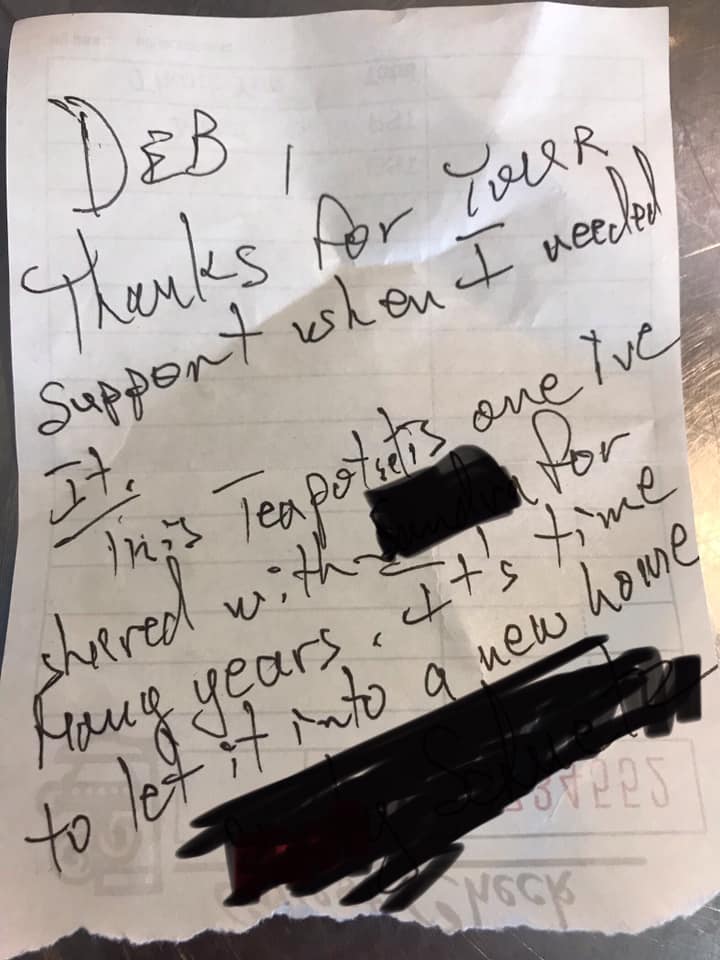 DEB,
Thanks for Your
Support when I needed
It.
This Teapot set is one I've
shared with for
Many years. It's time
to let it into a new home
34552
Guest Check